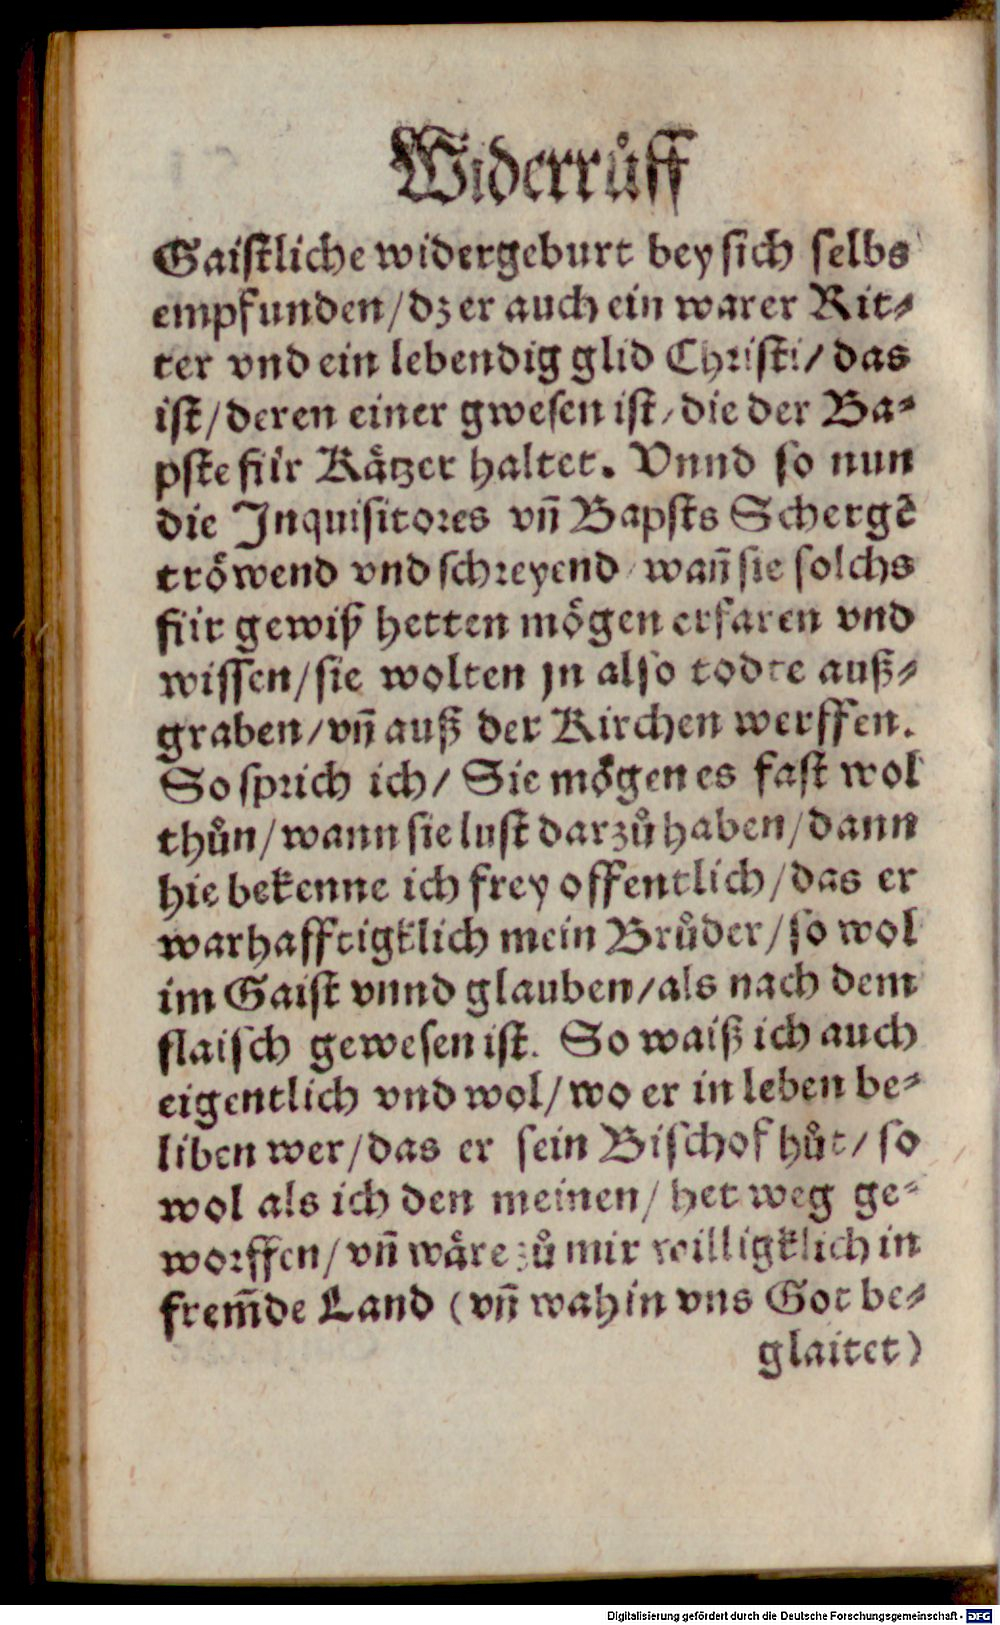 Widerruͦff
Gaistliche widergeburt bey sich selbs
empfunden/dz er auch ein warer Rit⸗
ter vnd ein lebendig glid Christi/das
ist/deren einer gwesen ist/die der Ba⸗
pste für Kaͤtzer haltet. Vnnd so nun
die Inquisitores vñ Bapsts Schergẽ
troͤwend vnd schreyend/wañ sie solchs
für gewiß hetten moͤgen erfaren vnd
wissen/sie wolten jn also todte auß⸗
graben/vñ auß der Kirchen werffen.
So sprich ich/Sie moͤgen es fast wol
thuͦn/wann sie lust darzuͦ haben/dann
hie bekenne ich frey offentlich/das er
warhafftigklich mein Bruͦder/so wol
im Gaist vnnd glauben/als nach dem
flaisch gewesen ist. So waiß ich auch
eigentlich vnd wol/wo er in leben be⸗
liben wer/das er sein Bischof huͦt/so
wol als ich den meinen/het weg ge⸗
worffen/vñ waͤre zuͦ mir willigklich in
frem̃de Land (vñ wahin vns Got be⸗
glaitet)
Digitalisierung gefördert durch die Deutsche Forschungsgemeinschaft - DFG